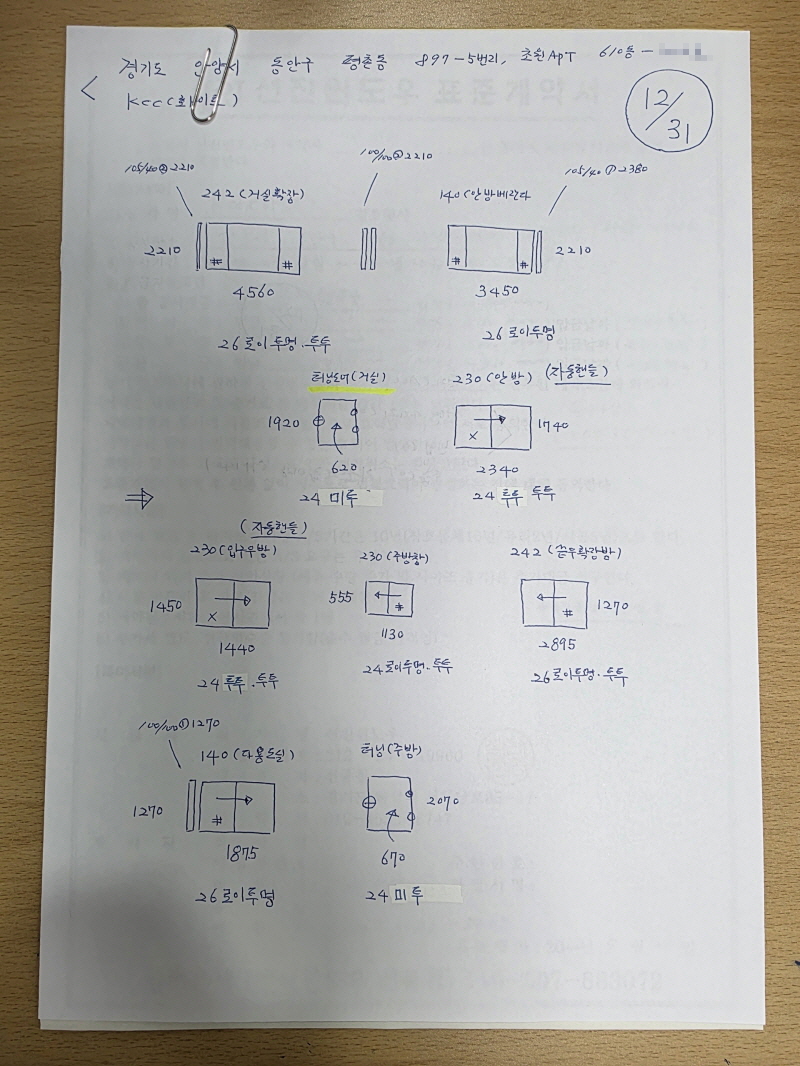 경기도 안양시 동안구 평촌동 897-5번지, 초원APT 610동-
KCC(화이트)
12/31
105/40 ② 2210
100/100 ② 2210
105/40 ① 2380
242 (거실확장)
140 (안방베란다
2210
4560
3450
2210
26로이투명·투투
26로이투명
터닝도어(거실)
230 (안방) (자동핸들)
1920
620
1740
2340
24 미투
24 투투 투투
⇒
(자동핸들)
230 (입구우방)
230 (주방창)
242 (끝우확장방)
1450
1440
555
1130
1270
2895
24 투투·투투
24로이투명·투투
26로이투명·투투
100/100 ① 1270
140 (다용도실)
터닝(주방)
1270
1875
2070
670
26로이투명
24 미투